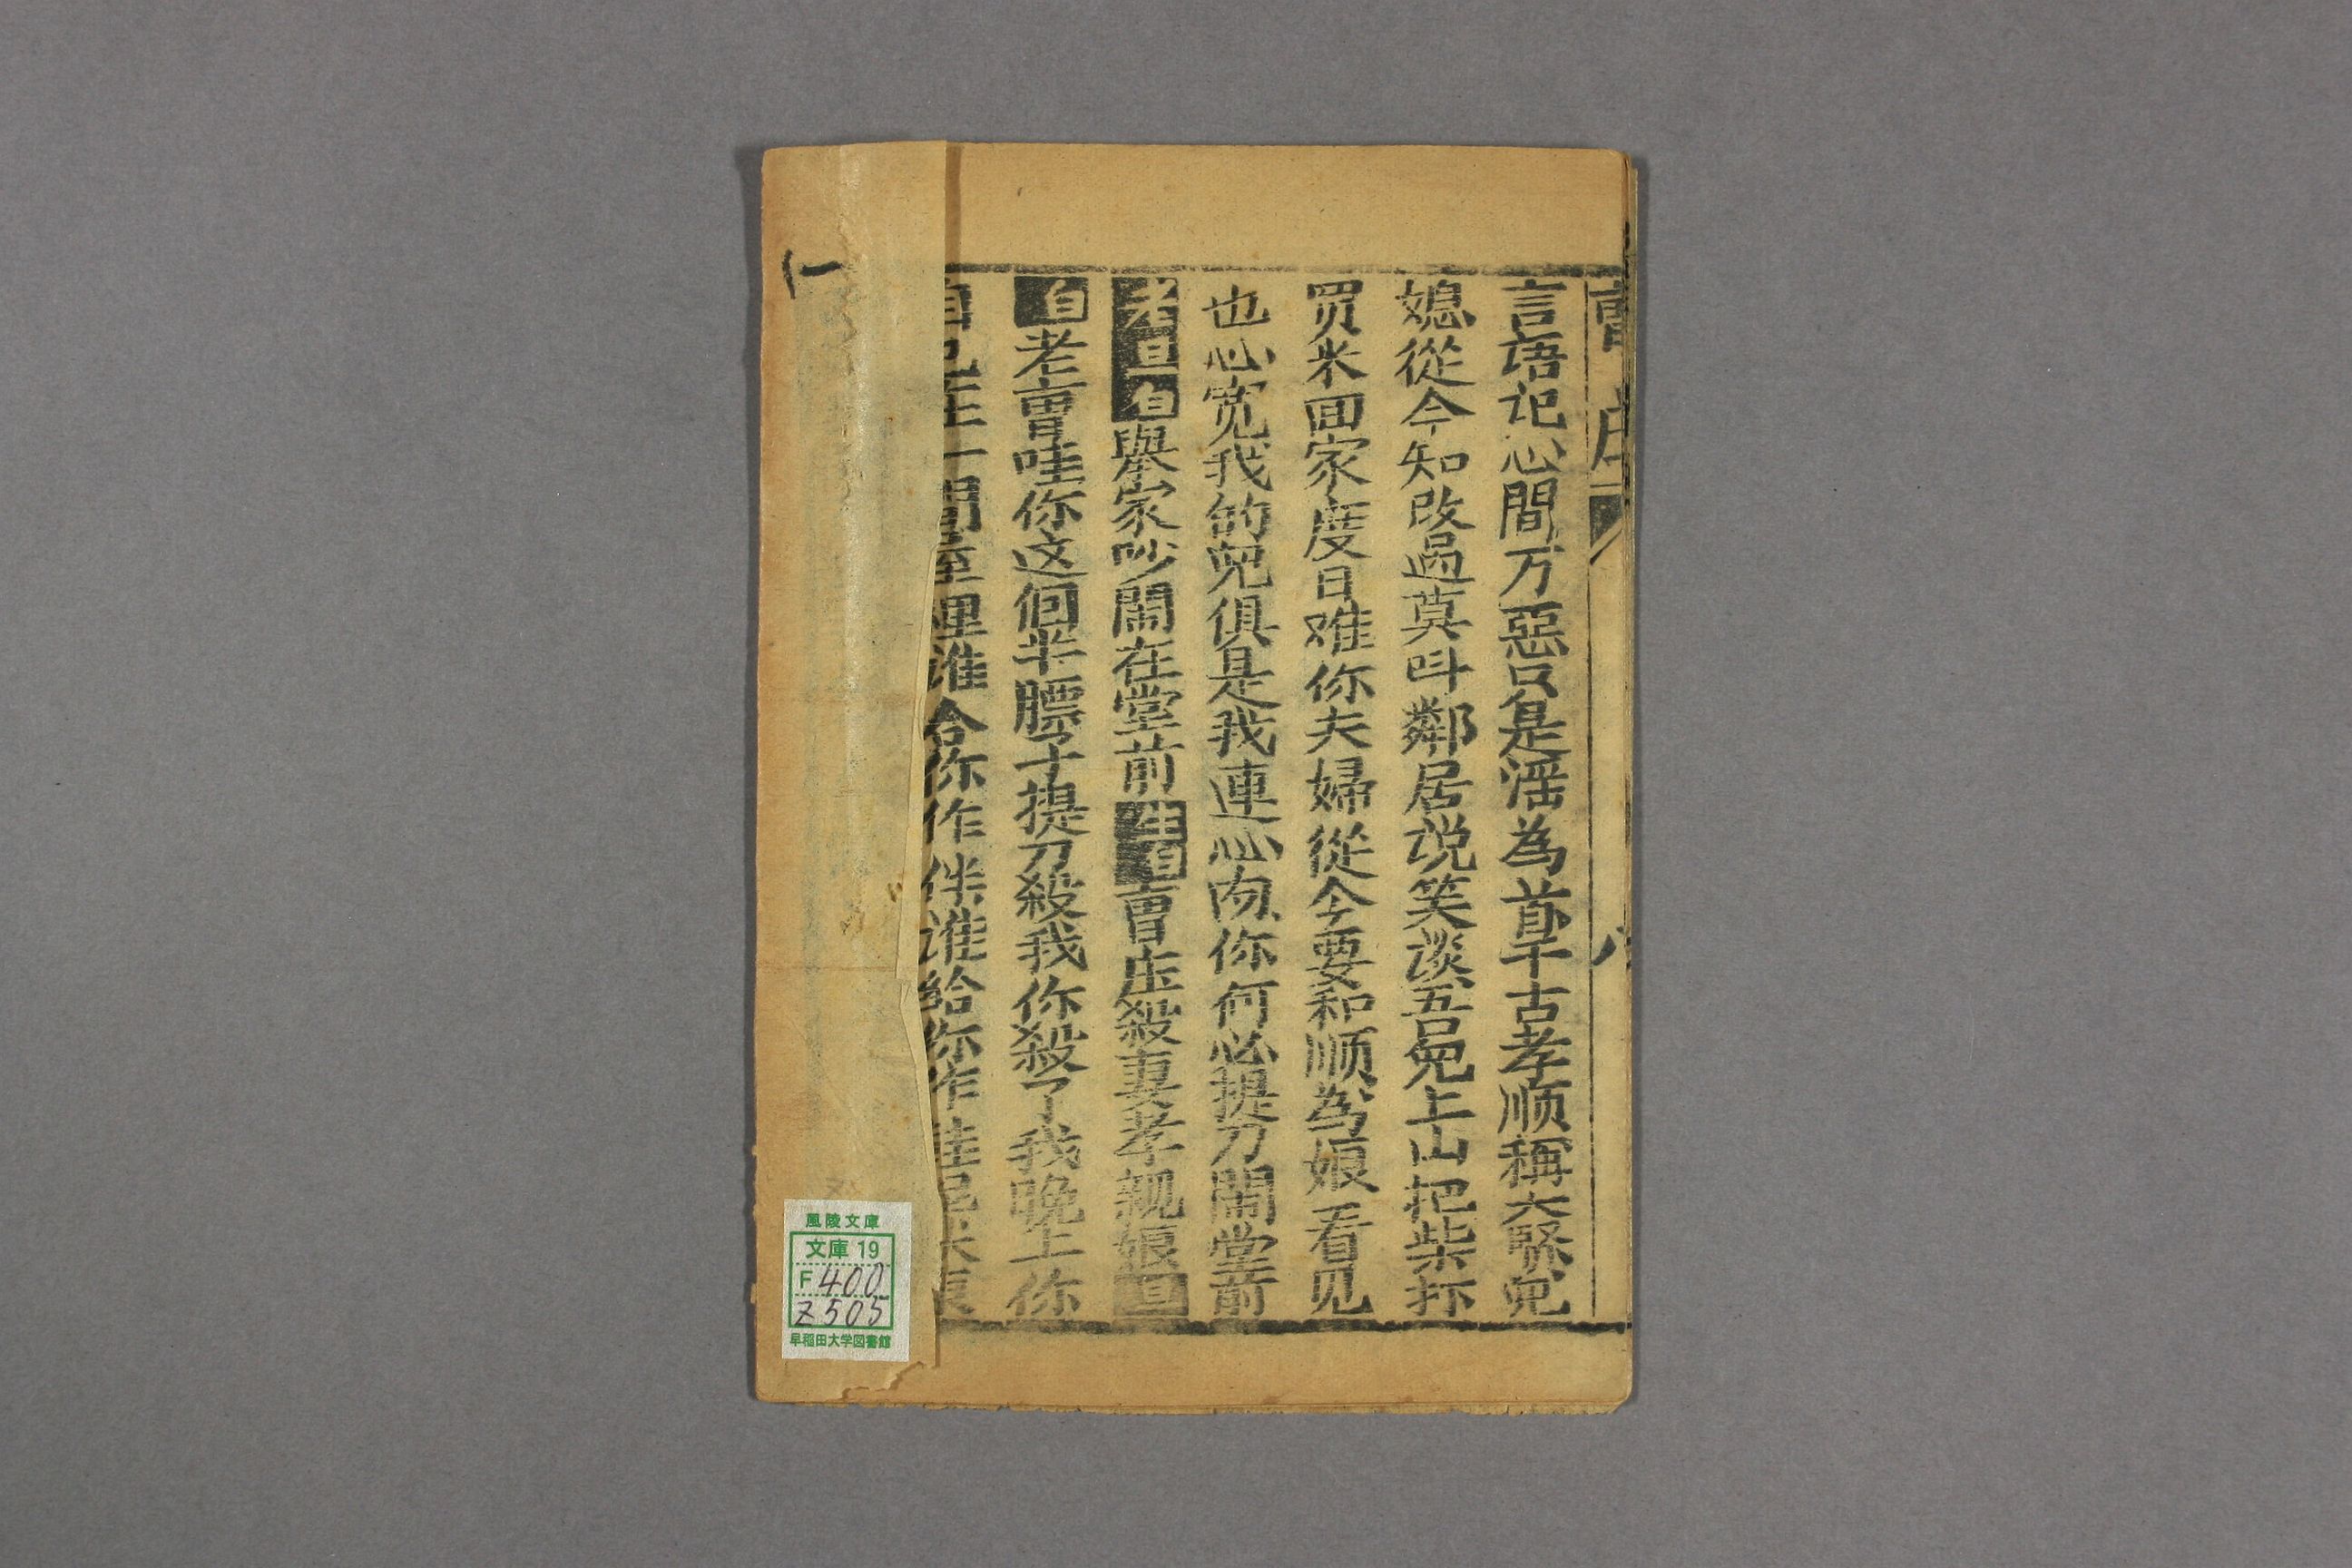 言语记心間万惡只是滛為首千古孝順稱大賢兒
媳從今知改過莫叫鄰居说笑談吾兒上山把柴打
买米回家度日难你夫婦從今要和順為娘看见
也心宽我的兒俱是我連心肉你何必提刀鬧堂前
老旦白舉家吵鬧在堂前生白曹庄殺妻孝親娘旦
白老曹哇你这個半膘子提刀殺我你殺了我晚上你
自己在一間屋裡谁合你作伴谁給你作鞋
風陵文庫
文庫 19
F 400
Z 505
早稲田大学図書館